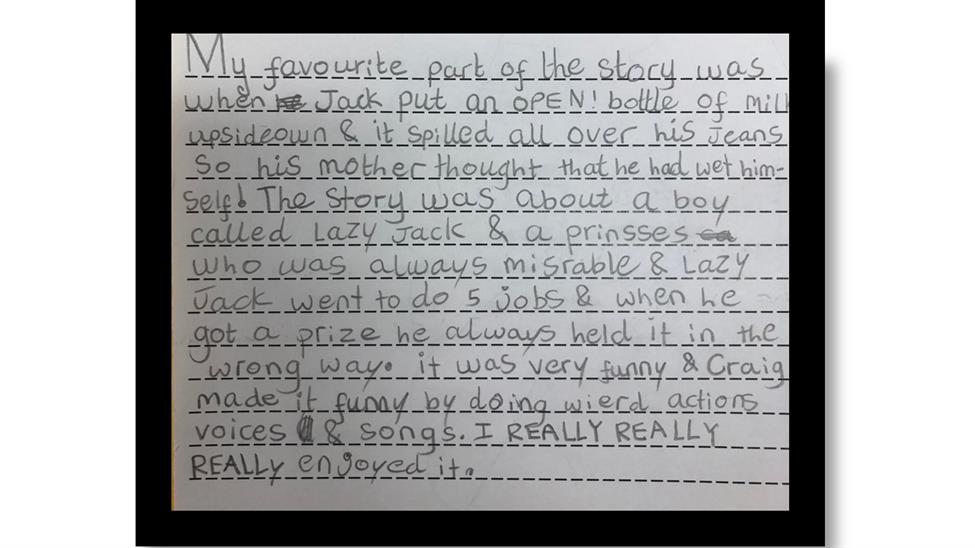 My favourite part of the story was
when Jack put an OPEN! bottle of milk
upsideown & it spilled all over his jeans
So his mother thought that he had wet him-
self! The story was about a boy
called Lazy Jack & a prinsses
who was always misrable & Lazy
Jack went to do 5 jobs & when he
got a prize he always held it in the
wrong way. it was very funny & Craig
made it funny by doing wierd actions
voices & songs. I REALLY REALLY
REALLY enjoyed it.